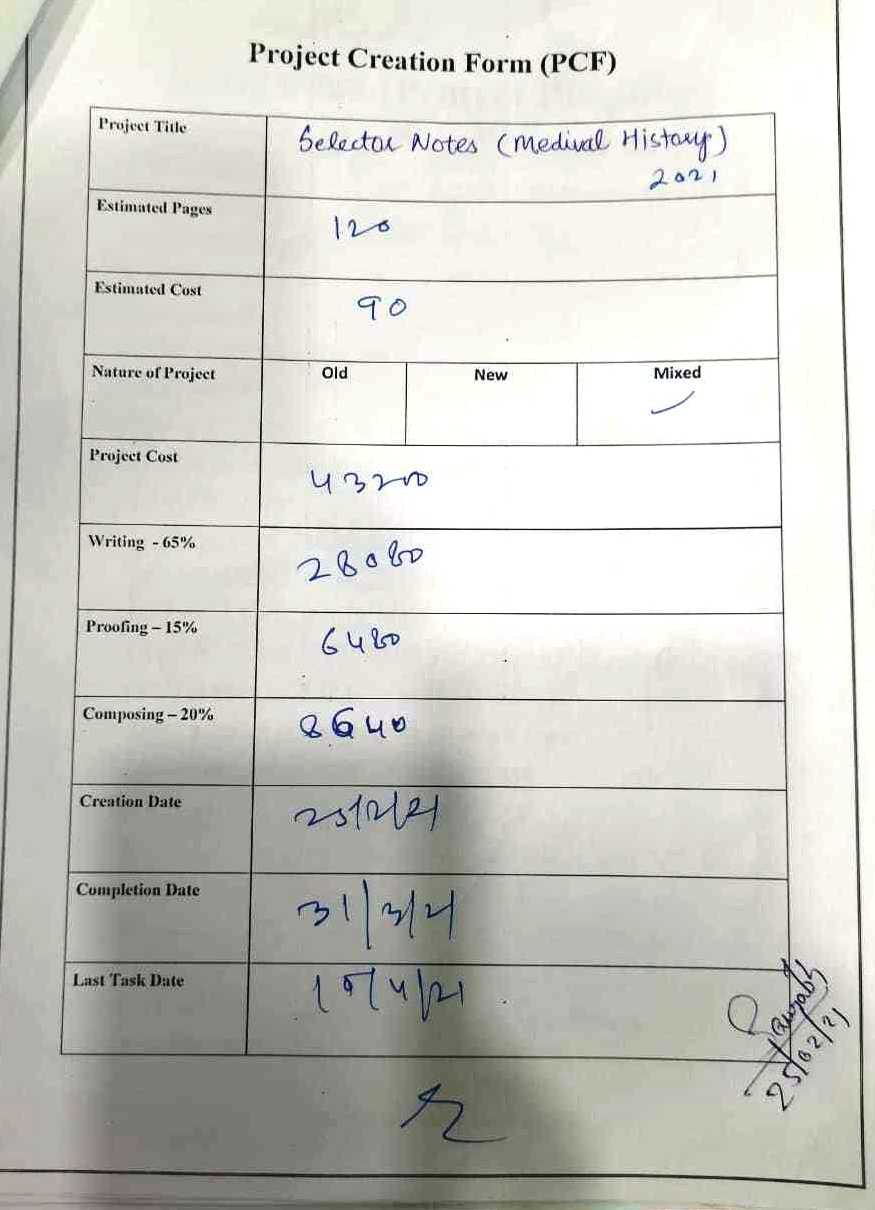 Project Creation Form (PCF)
Project Title
Selector Notes (Medival History)
2021
Estimated Pages
120
Estimated Cost
90
Nature of Project
Old
New
Mixed
Project Cost
43200
Writing - 65%
28080
Proofing – 15%
6480
Composing – 20%
8640
Creation Date
25/2/21
Completion Date
31/3/21
Last Task Date
25/02/21